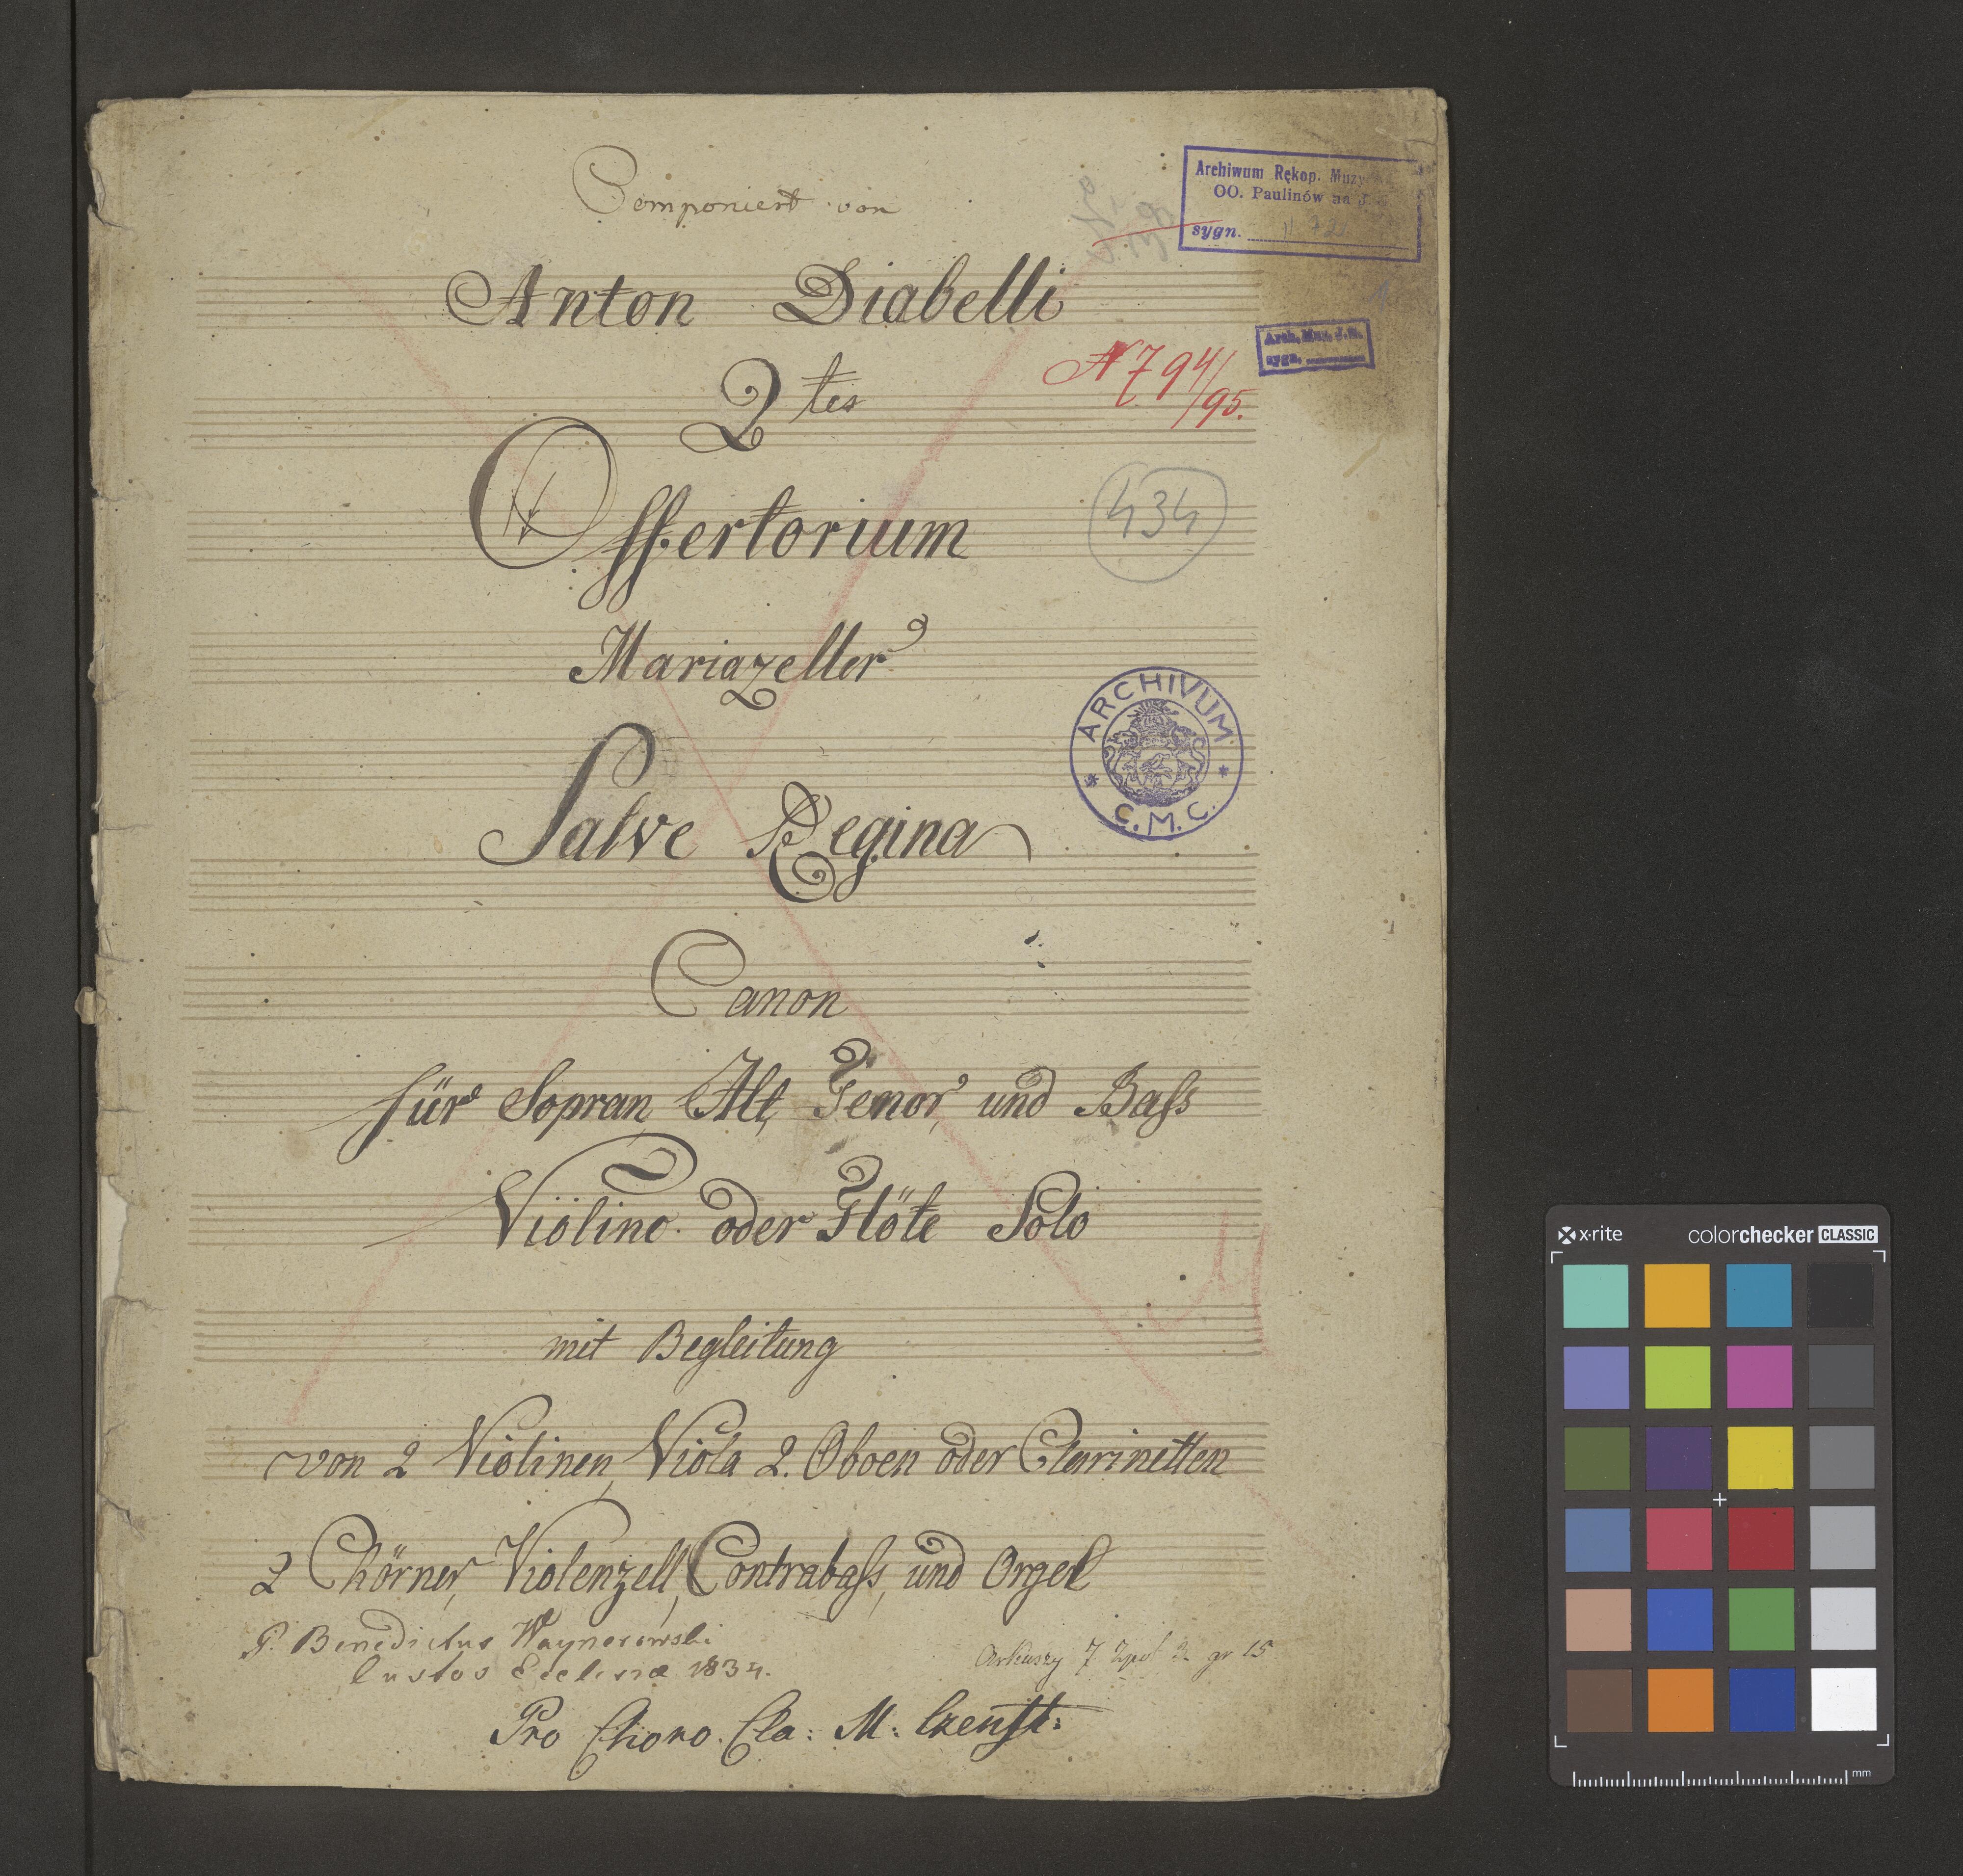 Componiert von
Archiwum Rękop. Muzy
OO. Paulinów na J.
sygn.
Anton Diabelli
Arch. Muz. J.G.
sygn.
2tes
N 794/95.
Offertorium
434
Mariazeller
ARCHIVUM
C.M.C.
Salve Regina
Canon
für Sopran, Alt, Tenor, und Bass
Violino oder Flöte Solo
mit Begleitung
von 2 Violinen, Viola 2. Oboen oder Clarinetten
2 Chörner, Violenzell, Contrabass, und Orgel
P. Benedictus
Custos Eclesiæ 1834.
Arkuszy 7 gr 15
Pro Choro. Cla: M: Czenst:
x·rite colorchecker CLASSIC
mm